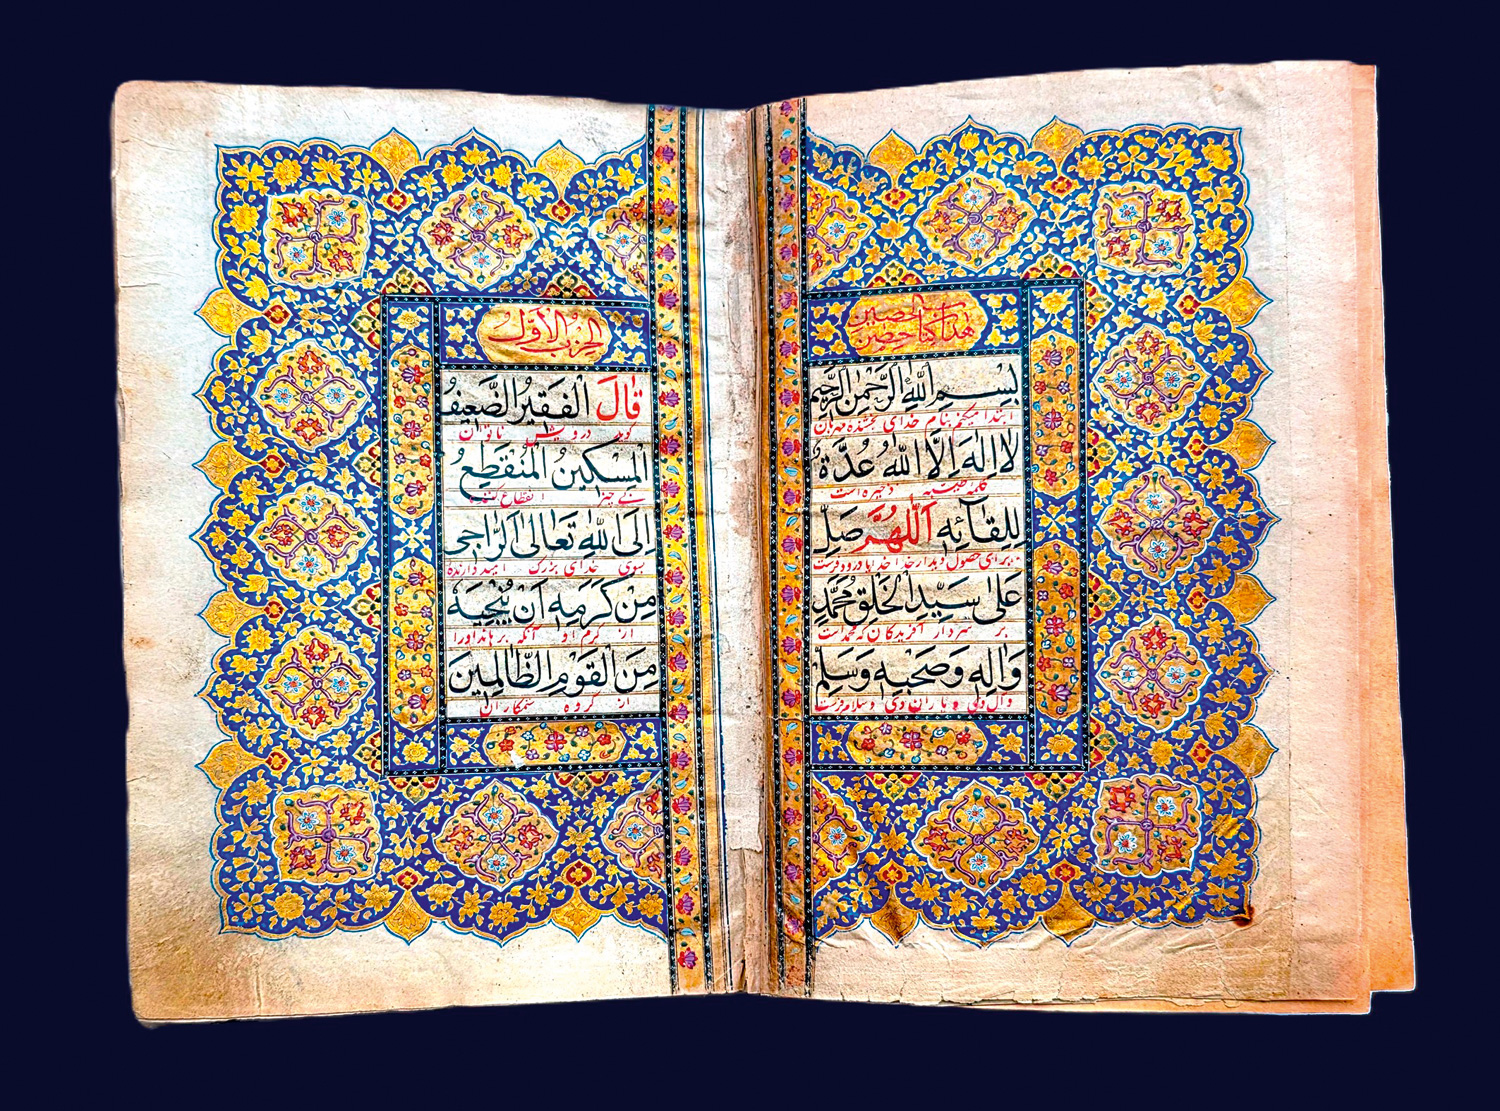 هذا كتاب حصن حصين
بِسْمِ اللّٰهِ الرَّحْمٰنِ الرَّحِيْمِ
ابتدا میکنم بنام خدای بخشنده مهربان
لَا اِلٰهَ اِلَّا اللّٰهُ عُدَّةٌ
کلمه طیبه ذخیره است
لِلِقَآئِهٖ اَللّٰهُمَّ صَلِّ
برای حصول دیدار خدا خدایا درود فرست
عَلٰى سَيِّدِ الْخَلْقِ مُحَمَّدٍ
بر سردار آفریدگان که محمد است
وَاٰلِهٖ وَصَحْبِهٖ وَسَلِّمْ
و آل وی و یاران وی و سلام فرست
الحزب الاوّل
قَالَ الْفَقِيْرُ الضَّعِيْفُ
گوید درویش ناتوان
الْمِسْكِيْنُ الْمُنْقَطِعُ
بی چیز انقطاع کننده
اِلَى اللّٰهِ تَعَالٰى اَلرَّاجِى
بسوی خدای بزرگ امید دارنده
مِنْ كَرَمِهٖ اَنْ يُنْجِيَهٗ
از کرم او آنکه برهاند اورا
مِنَ الْقَوْمِ الظَّالِمِيْنَ
از گروه ستمکاران